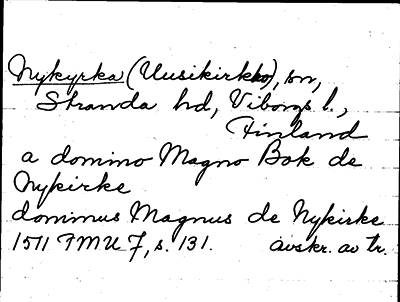 Nykyrka (Uusikirkko), sn,
Stranda hd, Viborgs l.,
Finland
a domino Magno Bok de
Nykirke
dominus Magnus de Nykirke
1511 FMU 7, s. 131. avskr. av tr.